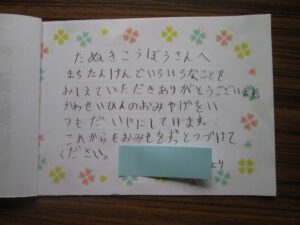 たぬきこうぼうさんへ
まちたんけんでいろいろなことを
おしえていただきありがとうございます
かわせいひんのおみやげをい
つもだいじにしています。
これからもおみせをずっとつづけて
ください。
より